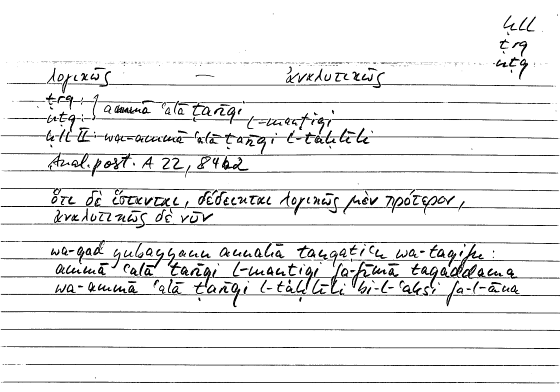 ḥll
ṭrq
nṭq
λογικῶς — ἀναλυτικῶς
ṭrq : } ammā ʿalā ṭarīqi
nṭq : l-manṭiqi
ḥll II : wa-ammā ʿalā ṭarīqi l-taḥlīli
Anal. post. A 22, 84b2
ὅτι δὲ ἵστανται, δέδεικται λογικῶς μὲν πρότερον,
ἀναλυτικῶς δὲ νῦν
wa-qad yubayyanu annahā tanqaṭiʿu wa-taqifu :
ammā ʿalā ṭarīqi l-manṭiqi fa-fīmā taqaddama
wa-ammā ʿalā ṭarīqi l-taḥlīli bi-l-ʿaksi fa-l-āna